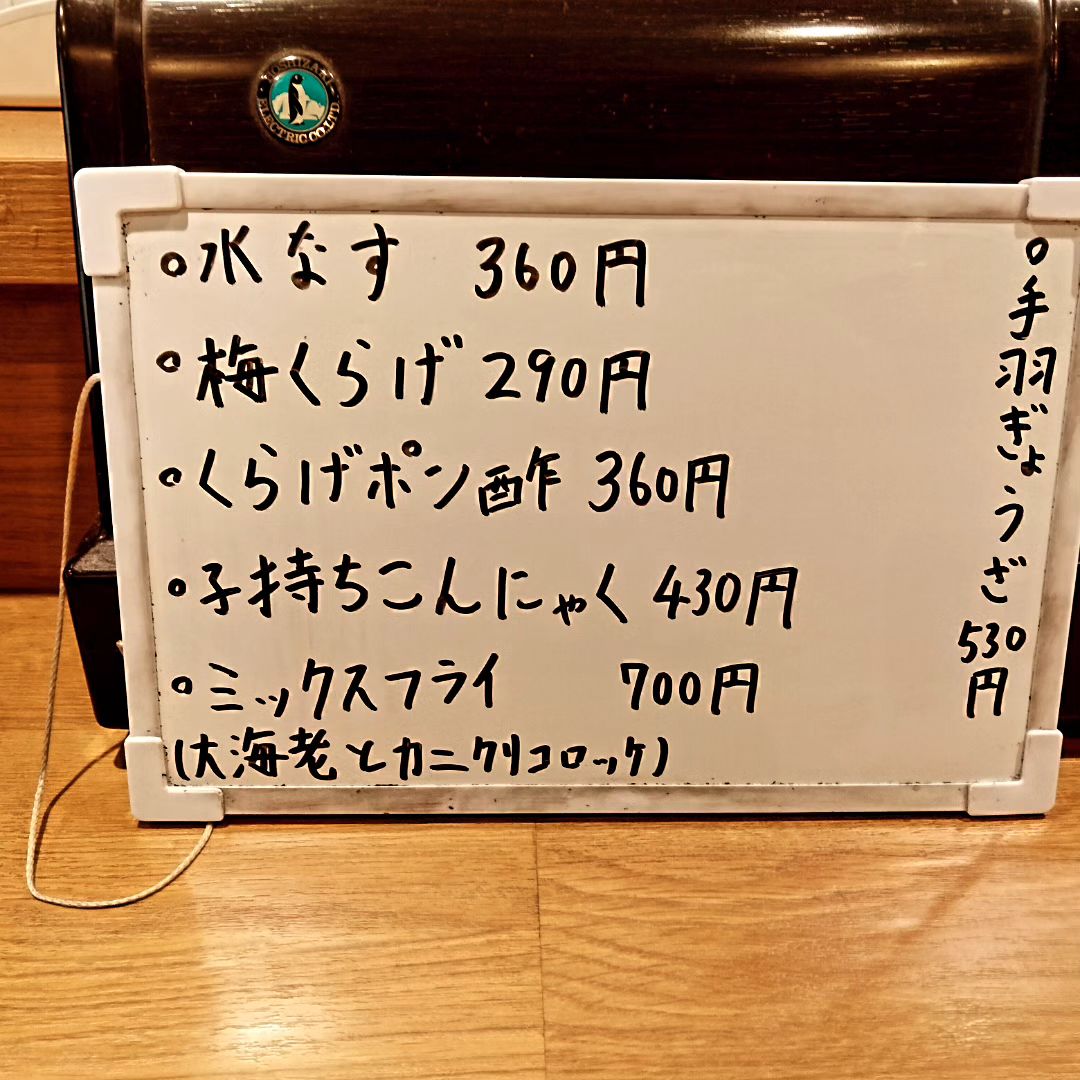 HOSHIZAKI ELECTRIC CO.LTD.
○水なす 360円
○梅くらげ 290円
○くらげポン酢 360円
○子持ちこんにゃく 430円
○ミックスフライ 700円
(大海老とカニクリコロッケ)
○手羽ぎょうざ530円